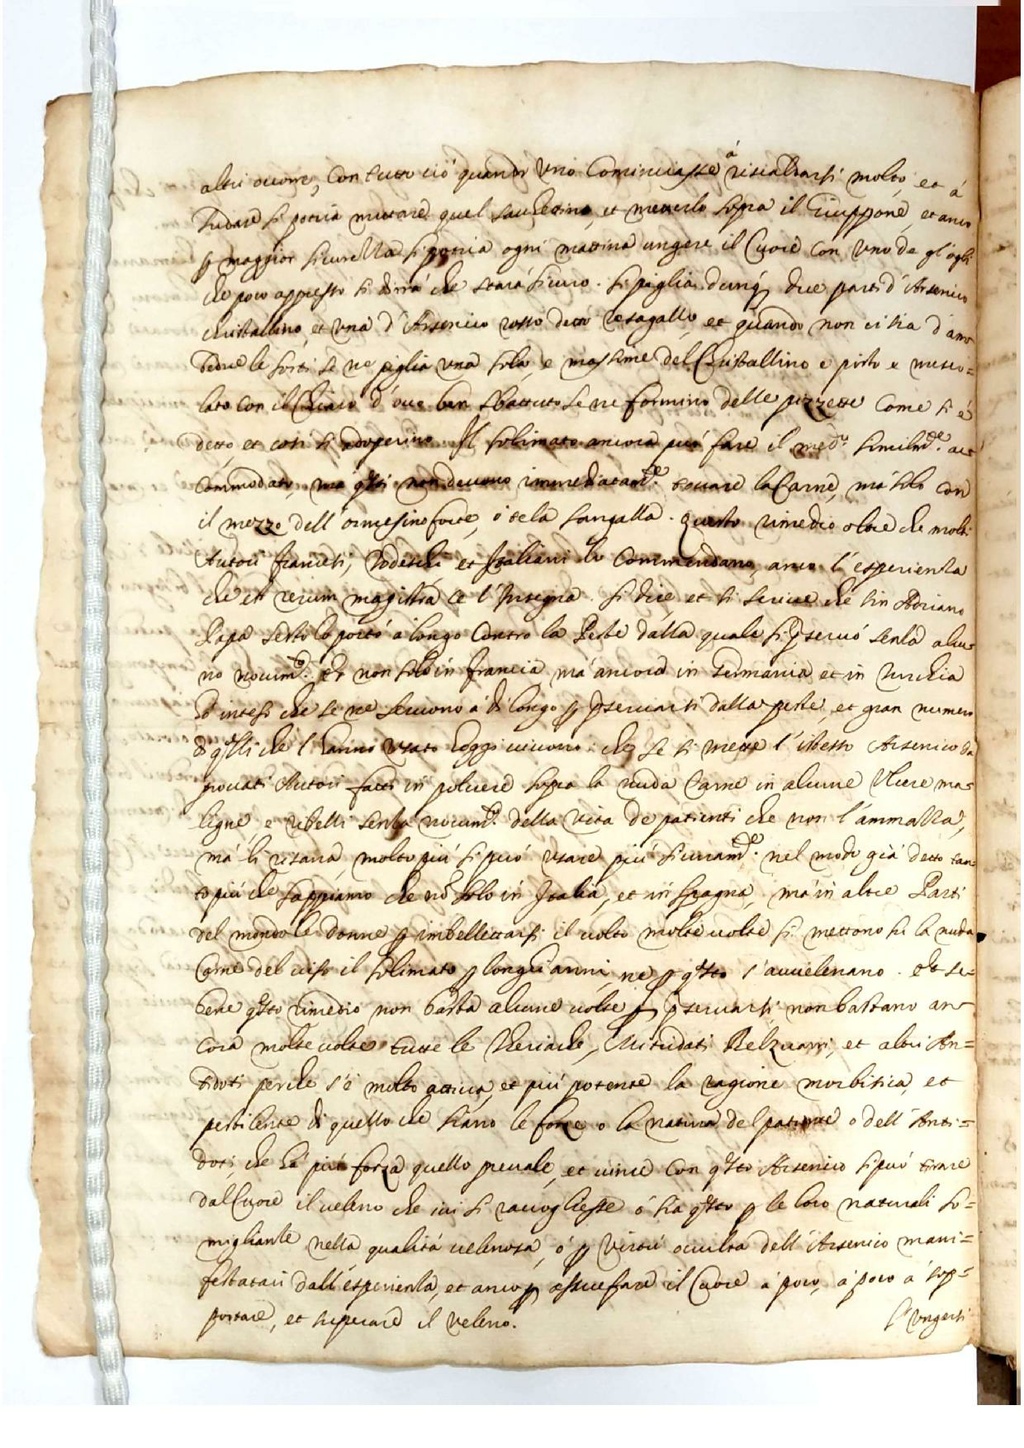 altri occorre, con tutto ciò quando uno cominciasse à riscaldarsi molto, et à
sudare si potria mutare quel sacchettino, et metterlo sopra il Giuppone, et anco
p maggior sicurezza si potria ogni mattina ungere il Cuore con uno de gl'ogli
che poco appresso si dirrà che starà sicuro. Si piglia dunq; due parti d'Arsenico
christallino, et una d'Arsenico rosso detto resagallo, et quando non ci sia d'am-
bedue le sorti se ne piglia una sola, e massime del Christallino e pisto e misco-
lato con il chiaro d'ovo ben sbattuto se ne formino delle pezzette come si è
detto et così si adoperino. Il solimato ancora può fare il med.º similm.te ac-
commodato, ma q.sti non devono immediatam.te toccare la Carne, mà solo con
il mezzo dell'ormesino forte, ò tela sangalla. Questo rimedio oltre che molti
Autori francesi, Todeschi et Italiani lo commendano, anco l'esperienza
che est rerum magistra ce l'insegna. Si dice et si scrive che sin Adriano
Papa sesto lo portò à longo contro la Peste dalla quale si p̃servò senza alcu-
no nocum.to et non solo in francia mà ancora in Germania et in Turchia
hò inteso che se ne servono à dì longo p p̃servarsi dalla peste, et gran numero
di q.lli che l'hanno usato hoggi vivono. che se si mette l'istesso Arsenico da
provati Autori fatti in polvere sopra la nuda Carne in alcune Ulcere ma-
ligne, e ribelli senza nocum.to della vita de patienti che non l'ammazza,
mà li risana, molto più si può usare più sicuram.te nel modo già detto tan-
to più che sappiamo che nò solo in Italia, et in Spagna, mà in altre Parti
del mondo le donne p imbellettarsi il volto molte volte si mettono sù la nuda
Carne del viso il solimato p longhi anni, ne p q.sto s'avvelenano. et se-
bene q.sto rimedio non basta alcune volte p p̃servarsi, non bastano an-
cora molte volte tutte le Theriache, Mitridati Belzuarri, et altri An-
tidoti perche s'è molto attiva, et più potente la cagione morbifica, et
pestilente di quello che siano le forze o la natura del patiente o dell'Anti-
doti che hà più forza quello prevale, et vince con q.sto Arsenico si può tirare
dal Cuore il veleno che ivi si raccogliesse ò sia q.sto p le loro naturali so-
miglianze nella qualità velenosa, ò p virtù occulta dell'Arsenico mani-
festataci dall'esperienza, et anco p assuefare il Cuore à poco, à poco à sop-
portare, et superare il veleno.
S'ungersi